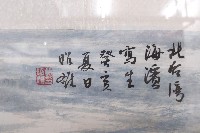 北台灣
海濱
寫生
癸亥
夏日